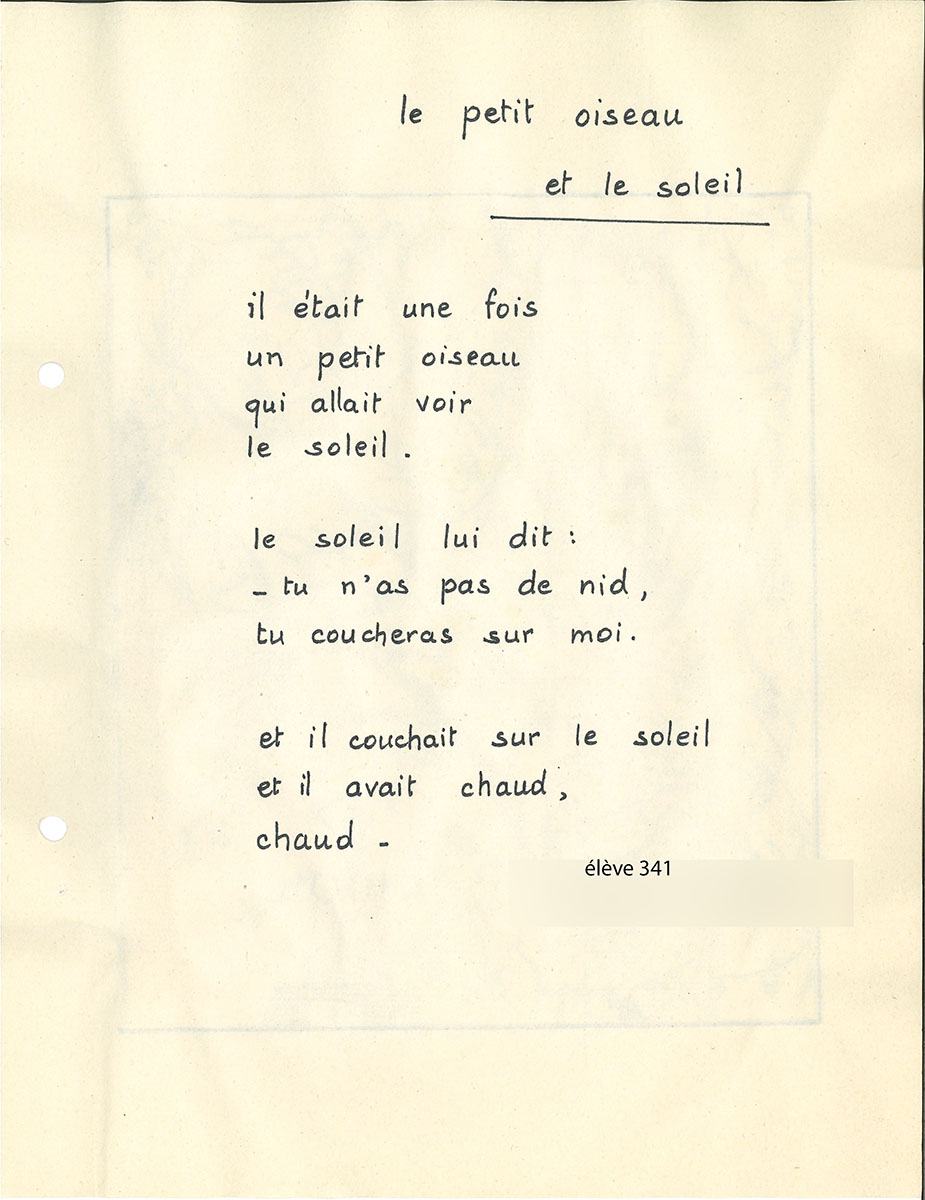 le petit oiseau
et le soleil
il était une fois
un petit oiseau
qui allait voir
le soleil.
le soleil lui dit :
- tu n'as pas de nid,
tu coucheras sur moi.
et il couchait sur le soleil
et il avait chaud,
chaud -
élève 341